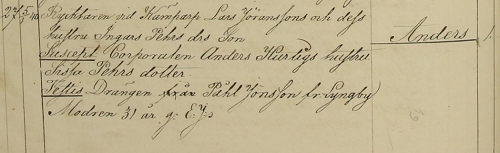 27 5/ 40 Ryttaren vid Kämparp Lars Jöranssons och dess Anders 1.
hustru Ingars Pehrs drs Son
Suscept Corporalen Anders Hurtigs hustru
Sista Pehrs dotter
Testis Drängen från Påhl Jönsson fr. Lyngby
Modren 31 år g. E. Js